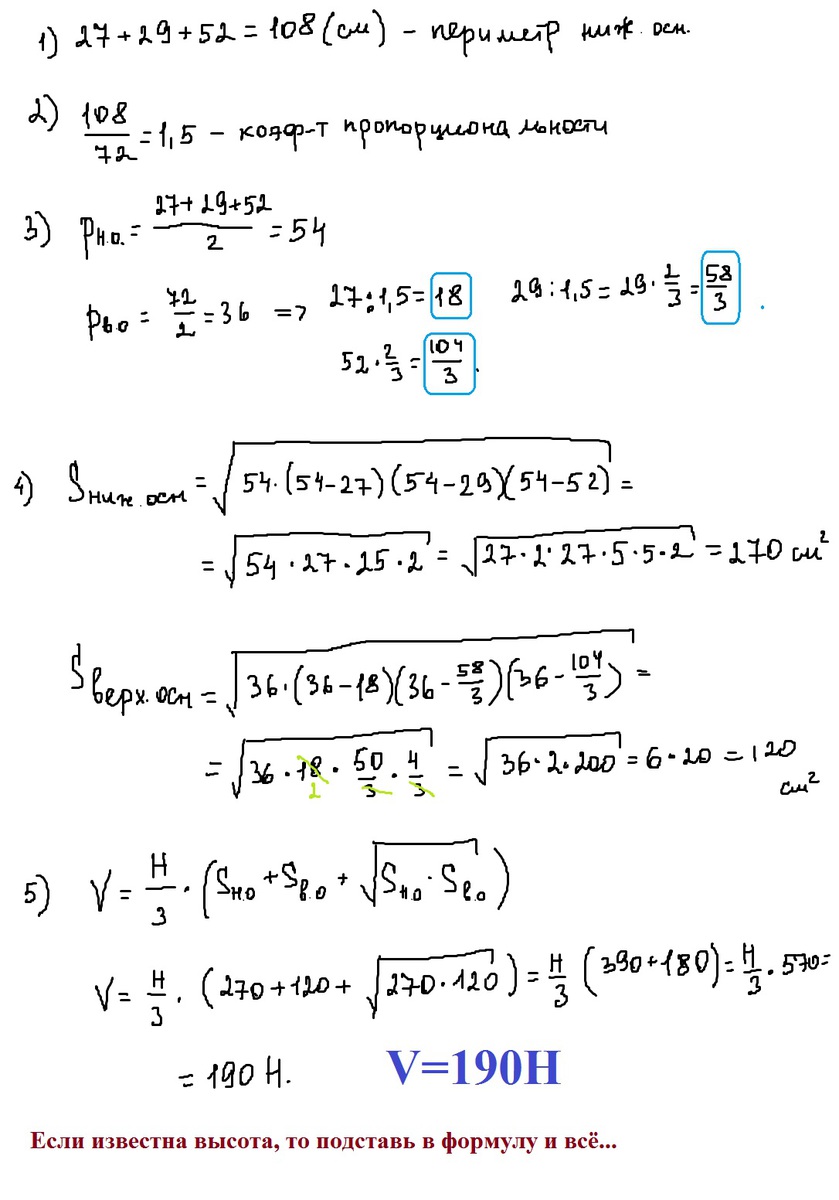 1) 27+29+52=108(см) – периметр ниж. осн.
2) 108/72=1,5 – коэф-т пропорциональности
3) Pн.о.= (27+29+52)/2 = 54
Pво = 72/2 = 36 => 27:1,5= 18 29:1,5=29·2/3= 58/3.
52·2/3= 104/3.
4) Sниж.осн = √(54·(54–27)(54–29)(54–52)) =
= √(54·27·25·2) = √(27·2·27·5·5·2) = 270 см²
Sверх.осн = √(36·(36–18)(36–58/3)(36–104/3)) =
= √(36·18·50/3·4/3) = √(36·2·200) = 6·20 = 120
2
см²
5) V = H/3·(Sн.о+Sв.о+√(Sн.о·Sв.о))
V= H/3·(270+120+√(270·120)) = H/3(390+180)= H/3·570=
= 190 H. V=190H
Если известна высота, то подставь в формулу и всё...